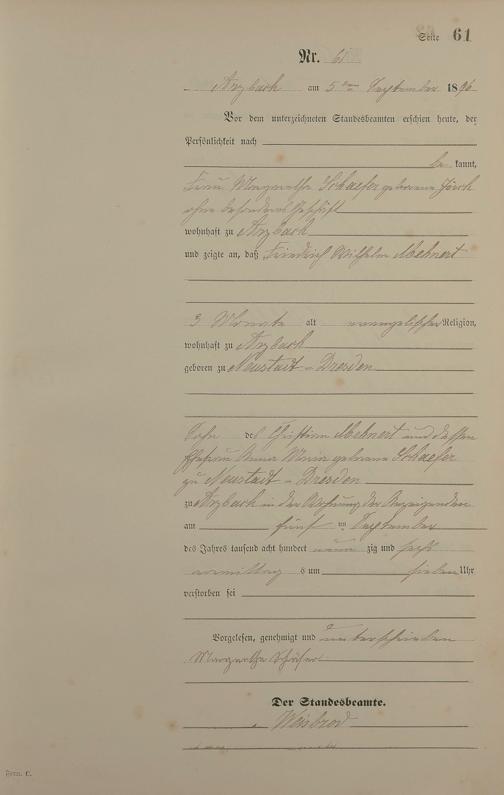 Seite 61
Nr. 61
Arzbach am 5ten September 1896
Vor dem unterzeichneten Standesbeamten erschien heute, der
Persönlichkeit nach
be kannt,
Frau Margarethe Schaefer geborene Jörch
ohne besonderes Geschäft
wohnhaft zu Arzbach
und zeigte an, daß Friedrich Wilhelm Mehnert
3 Monate alt evangelischer Religion,
wohnhaft zu Arzbach
geboren zu Neustadt - Dresden
Sohn des Christian Mehnert und dessen
Ehefrau Anna Maria geborene Schaefer
zu Neustadt - Dresden
zu Arzbach in der Wohnung der Anzeigenden
am fünf ten September
des Jahres tausend acht hundert neun zig und sechs
vormittag s um sieben Uhr
verstorben sei
Vorgelesen, genehmigt und unterschrieben
Margarethe Schäfer
Der Standesbeamte.
Weisbrod
Form. C.